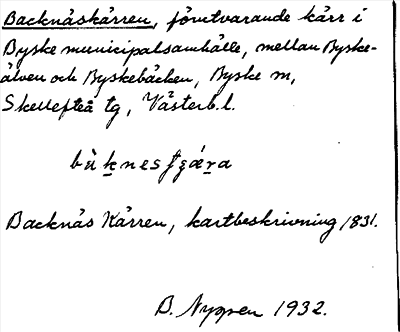 Backnäskärren, förutvarande kärr i
Byske municipalsamhälle, mellan Byske-
älven och Byskebäcken, Byske sn,
Skellefteå tg, Västerb. l.
Backnäs Kärren, kartbeskrivning 1831.
B. Nygren 1932.